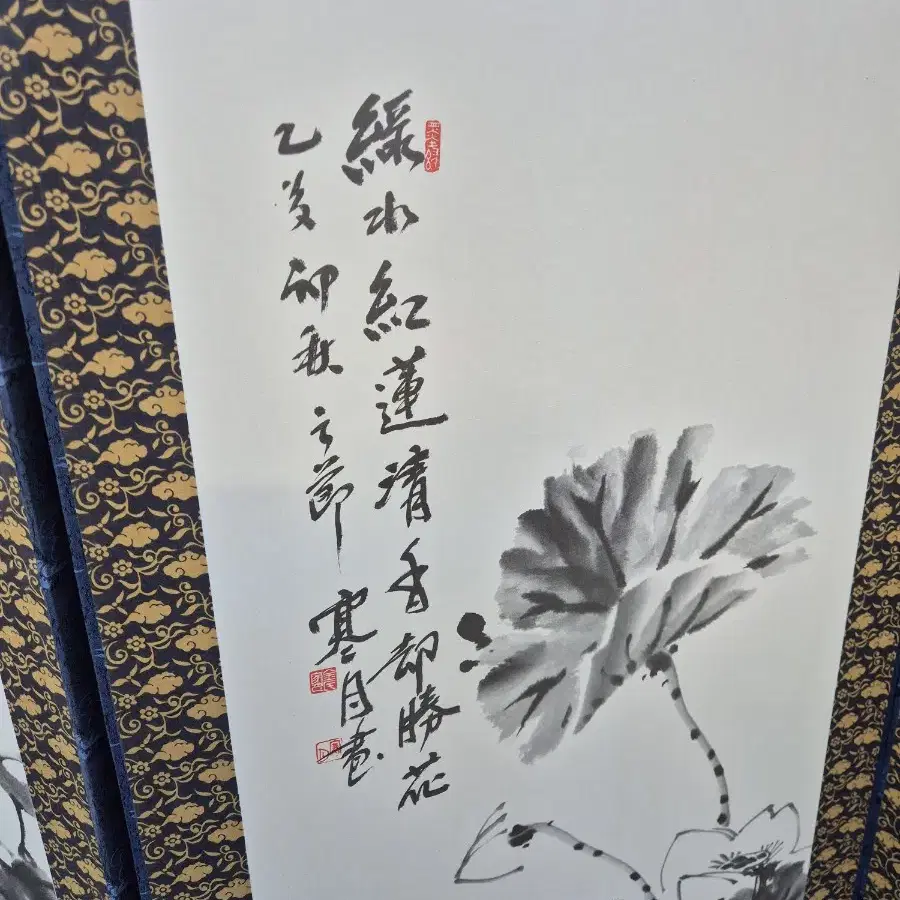 綠水紅蓮清香却勝花
乙亥初秋之節 寒月畫